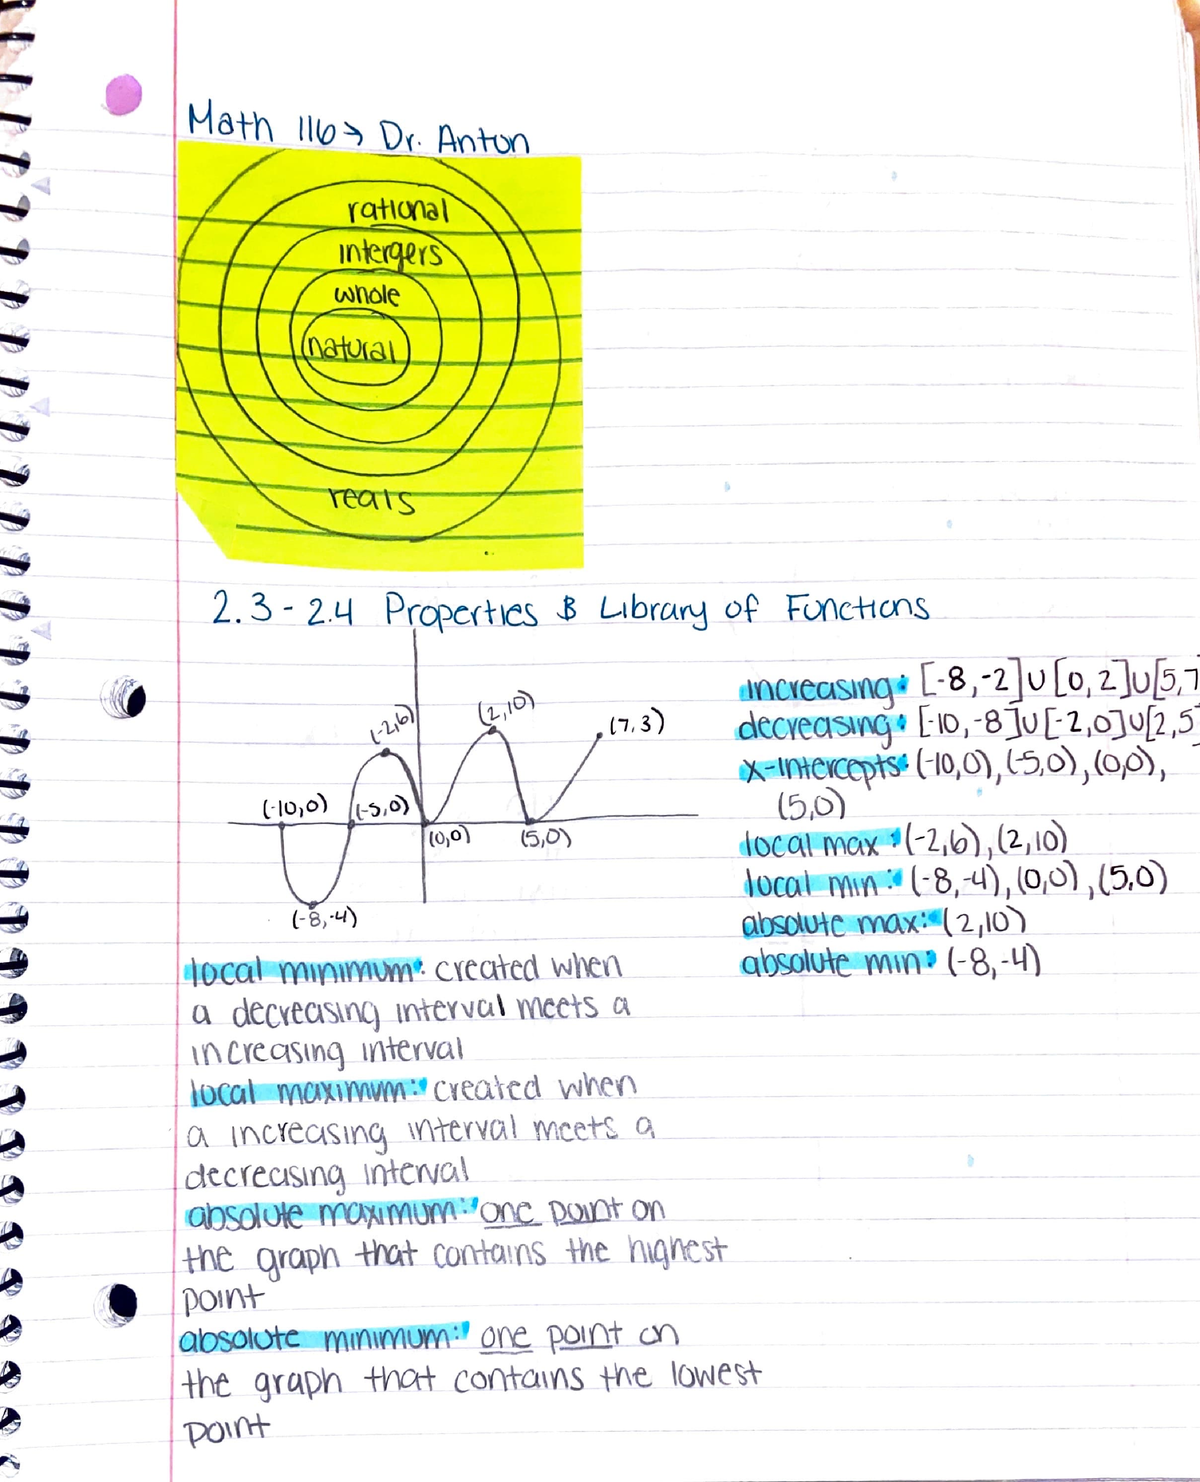 Math 116→ Dr. Anton
rational
intergers
whole
natural
reals
2.3-2.4 Properties & Library of Functions
(-2,6)
(2,10)
(7,3)
(-10,0)
(-5,0)
(0,0)
(5,0)
(-8,-4)
increasing: [-8,-2]∪[0,2]∪[5,7
decreasing: [-10,-8]∪[-2,0]∪[2,5
x-intercepts: (-10,0),(-5,0),(0,0),
(5,0)
local max: (-2,6),(2,10)
local min: (-8,-4),(0,0),(5,0)
absolute max: (2,10)
absolute min: (-8,-4)
local minimum: created when
a decreasing interval meets a
increasing interval
local maximum: created when
a increasing interval meets a
decreasing interval
absolute maximum: one point on
the graph that contains the highest
point
absolute minimum: one point on
the graph that contains the lowest
point